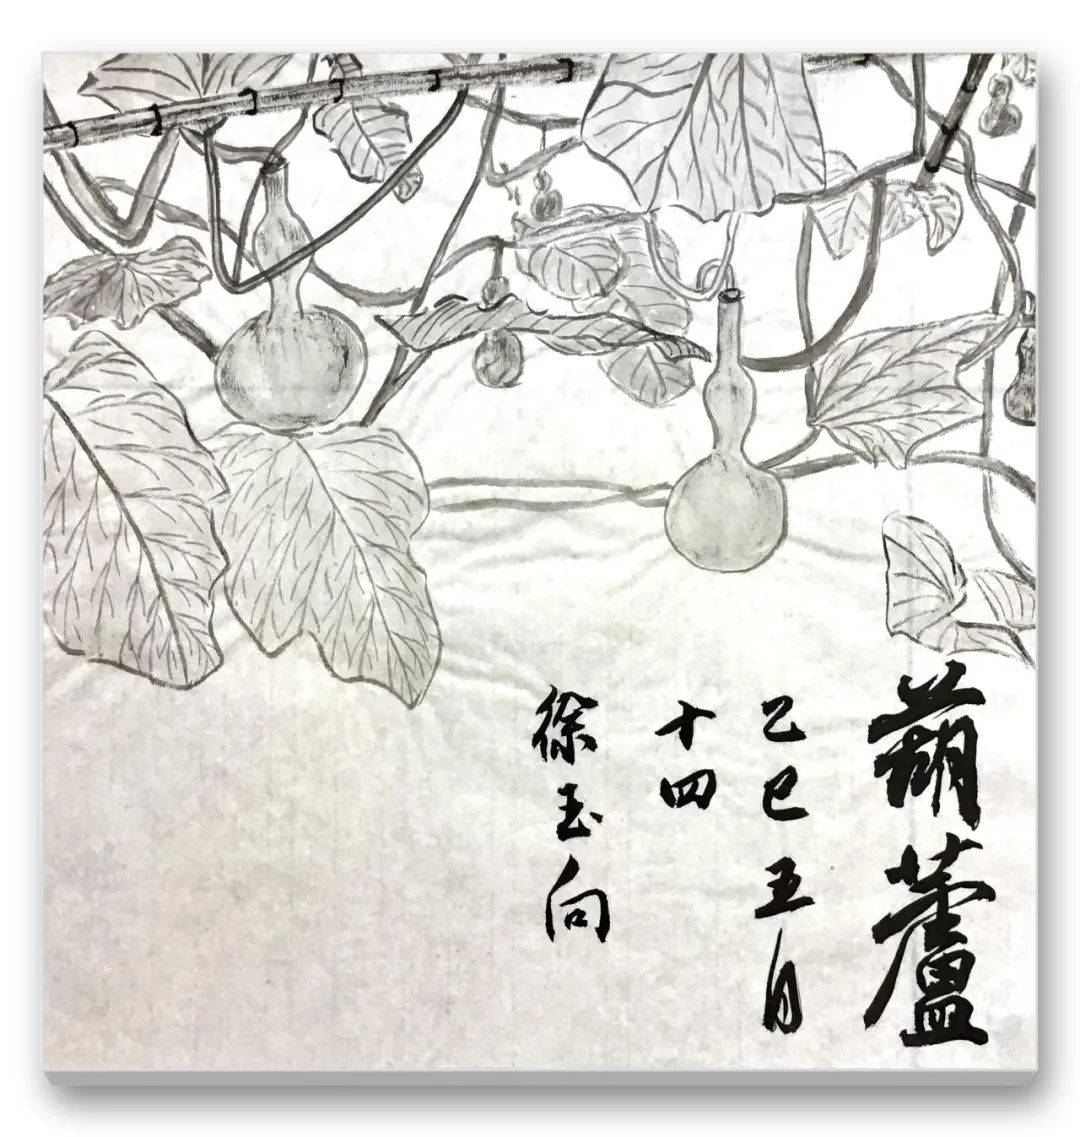 葫蘆
乙巳五月
十四
徐玉向